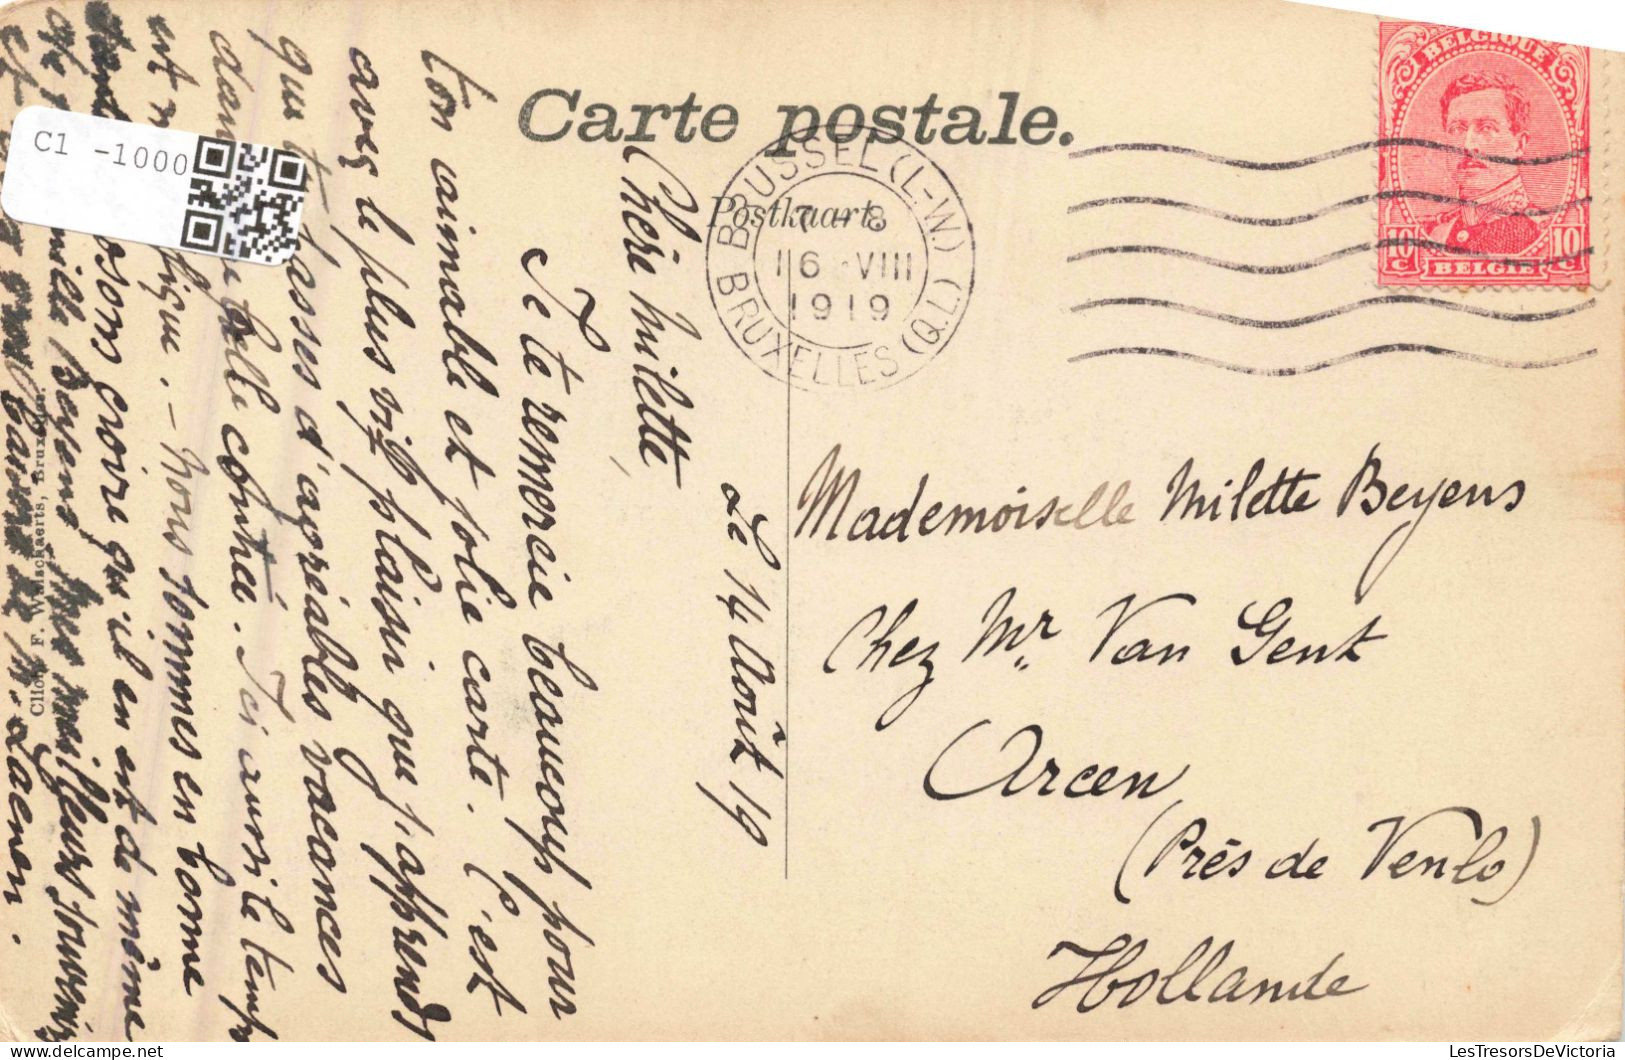 Carte postale.
Postkaart.
BRUSSEL (L-W.)
7-8
16 VIII
1919
BRUXELLES (Q.L.)
BELGIQUE
10 C
10 C
BELGIË
C1 -1000
Le 14 Août 19
Chère Milette,
Je te remercie beaucoup pour
ton aimable et jolie carte. C'est
avec le plus vif plaisir que j'apprends
que tu passes d'agréables vacances
dans belle contrée. Ici aussi le temps
est . – Nous sommes en bonne
osons croire qu'il en est de même
famille Beyens. meilleurs souvenirs
et
Mademoiselle Milette Beyens
Chez Mr Van Gent
Arcen
(Près de Venlo)
Hollande
F. Walschaerts, Bruxelles.
LesTresorsDeVictoria